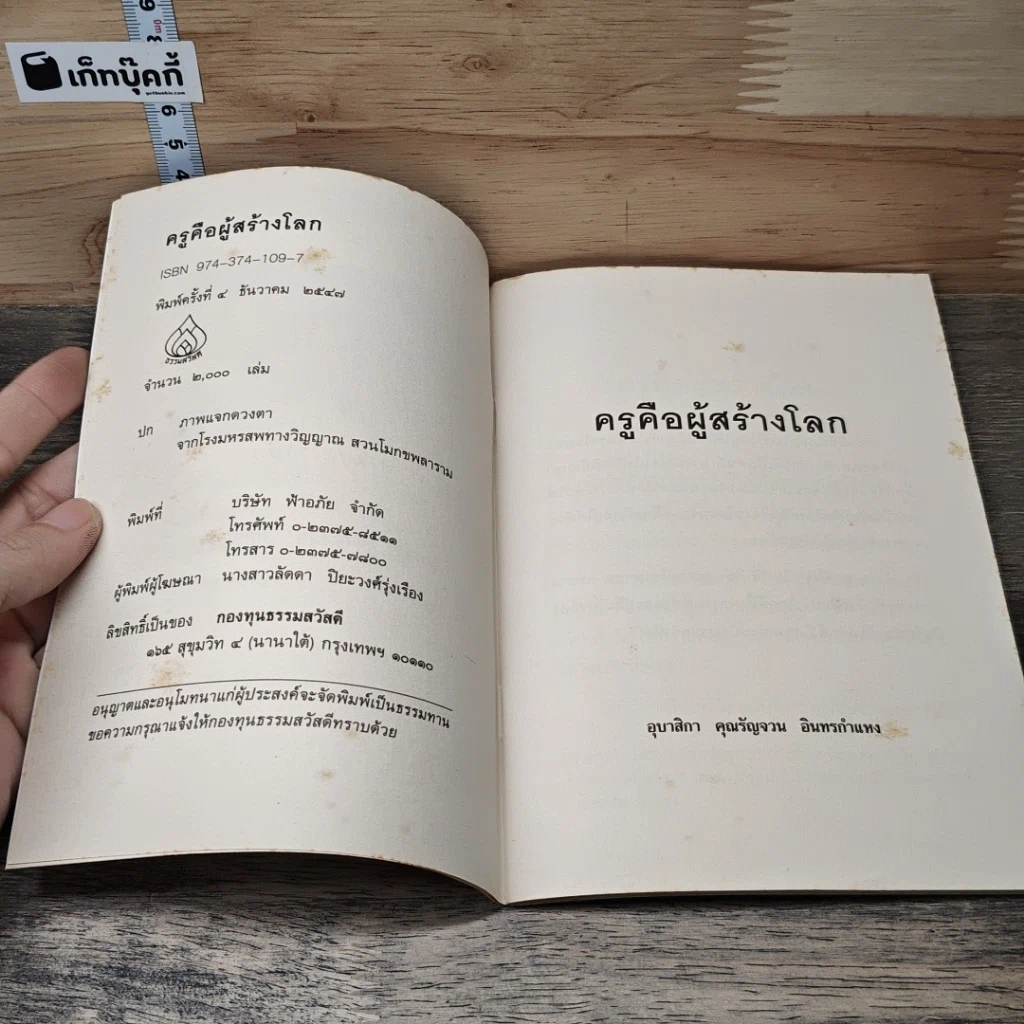 เก็ทบุ๊คกี้
getbookie.com
6
5
4
ครูคือผู้สร้างโลก
ISBN 974-374-109-7
พิมพ์ครั้งที่ ๔ ธันวาคม ๒๕๔๗
ธรรมสวัสดี
จำนวน ๒,๐๐๐ เล่ม
ปก ภาพแจกดวงตา
จากโรงมหรสพทางวิญญาณ สวนโมกขพลาราม
พิมพ์ที่ บริษัท ฟ้าอภัย จำกัด
โทรศัพท์ ๐-๒๓๗๕-๘๕๑๑
โทรสาร ๐-๒๓๗๕-๗๘๐๐
ผู้พิมพ์ผู้โฆษณา นางสาวลัดดา ปิยะวงศ์รุ่งเรือง
ลิขสิทธิ์เป็นของ กองทุนธรรมสวัสดี
๑๖๕ สุขุมวิท ๔ (นานาใต้) กรุงเทพฯ ๑๐๑๑๐
อนุญาตและอนุโมทนาแก่ผู้ประสงค์จะจัดพิมพ์เป็นธรรมทาน
ขอความกรุณาแจ้งให้กองทุนธรรมสวัสดีทราบด้วย
ครูคือผู้สร้างโลก
อุบาสิกา คุณรัญจวน อินทรกำแหง